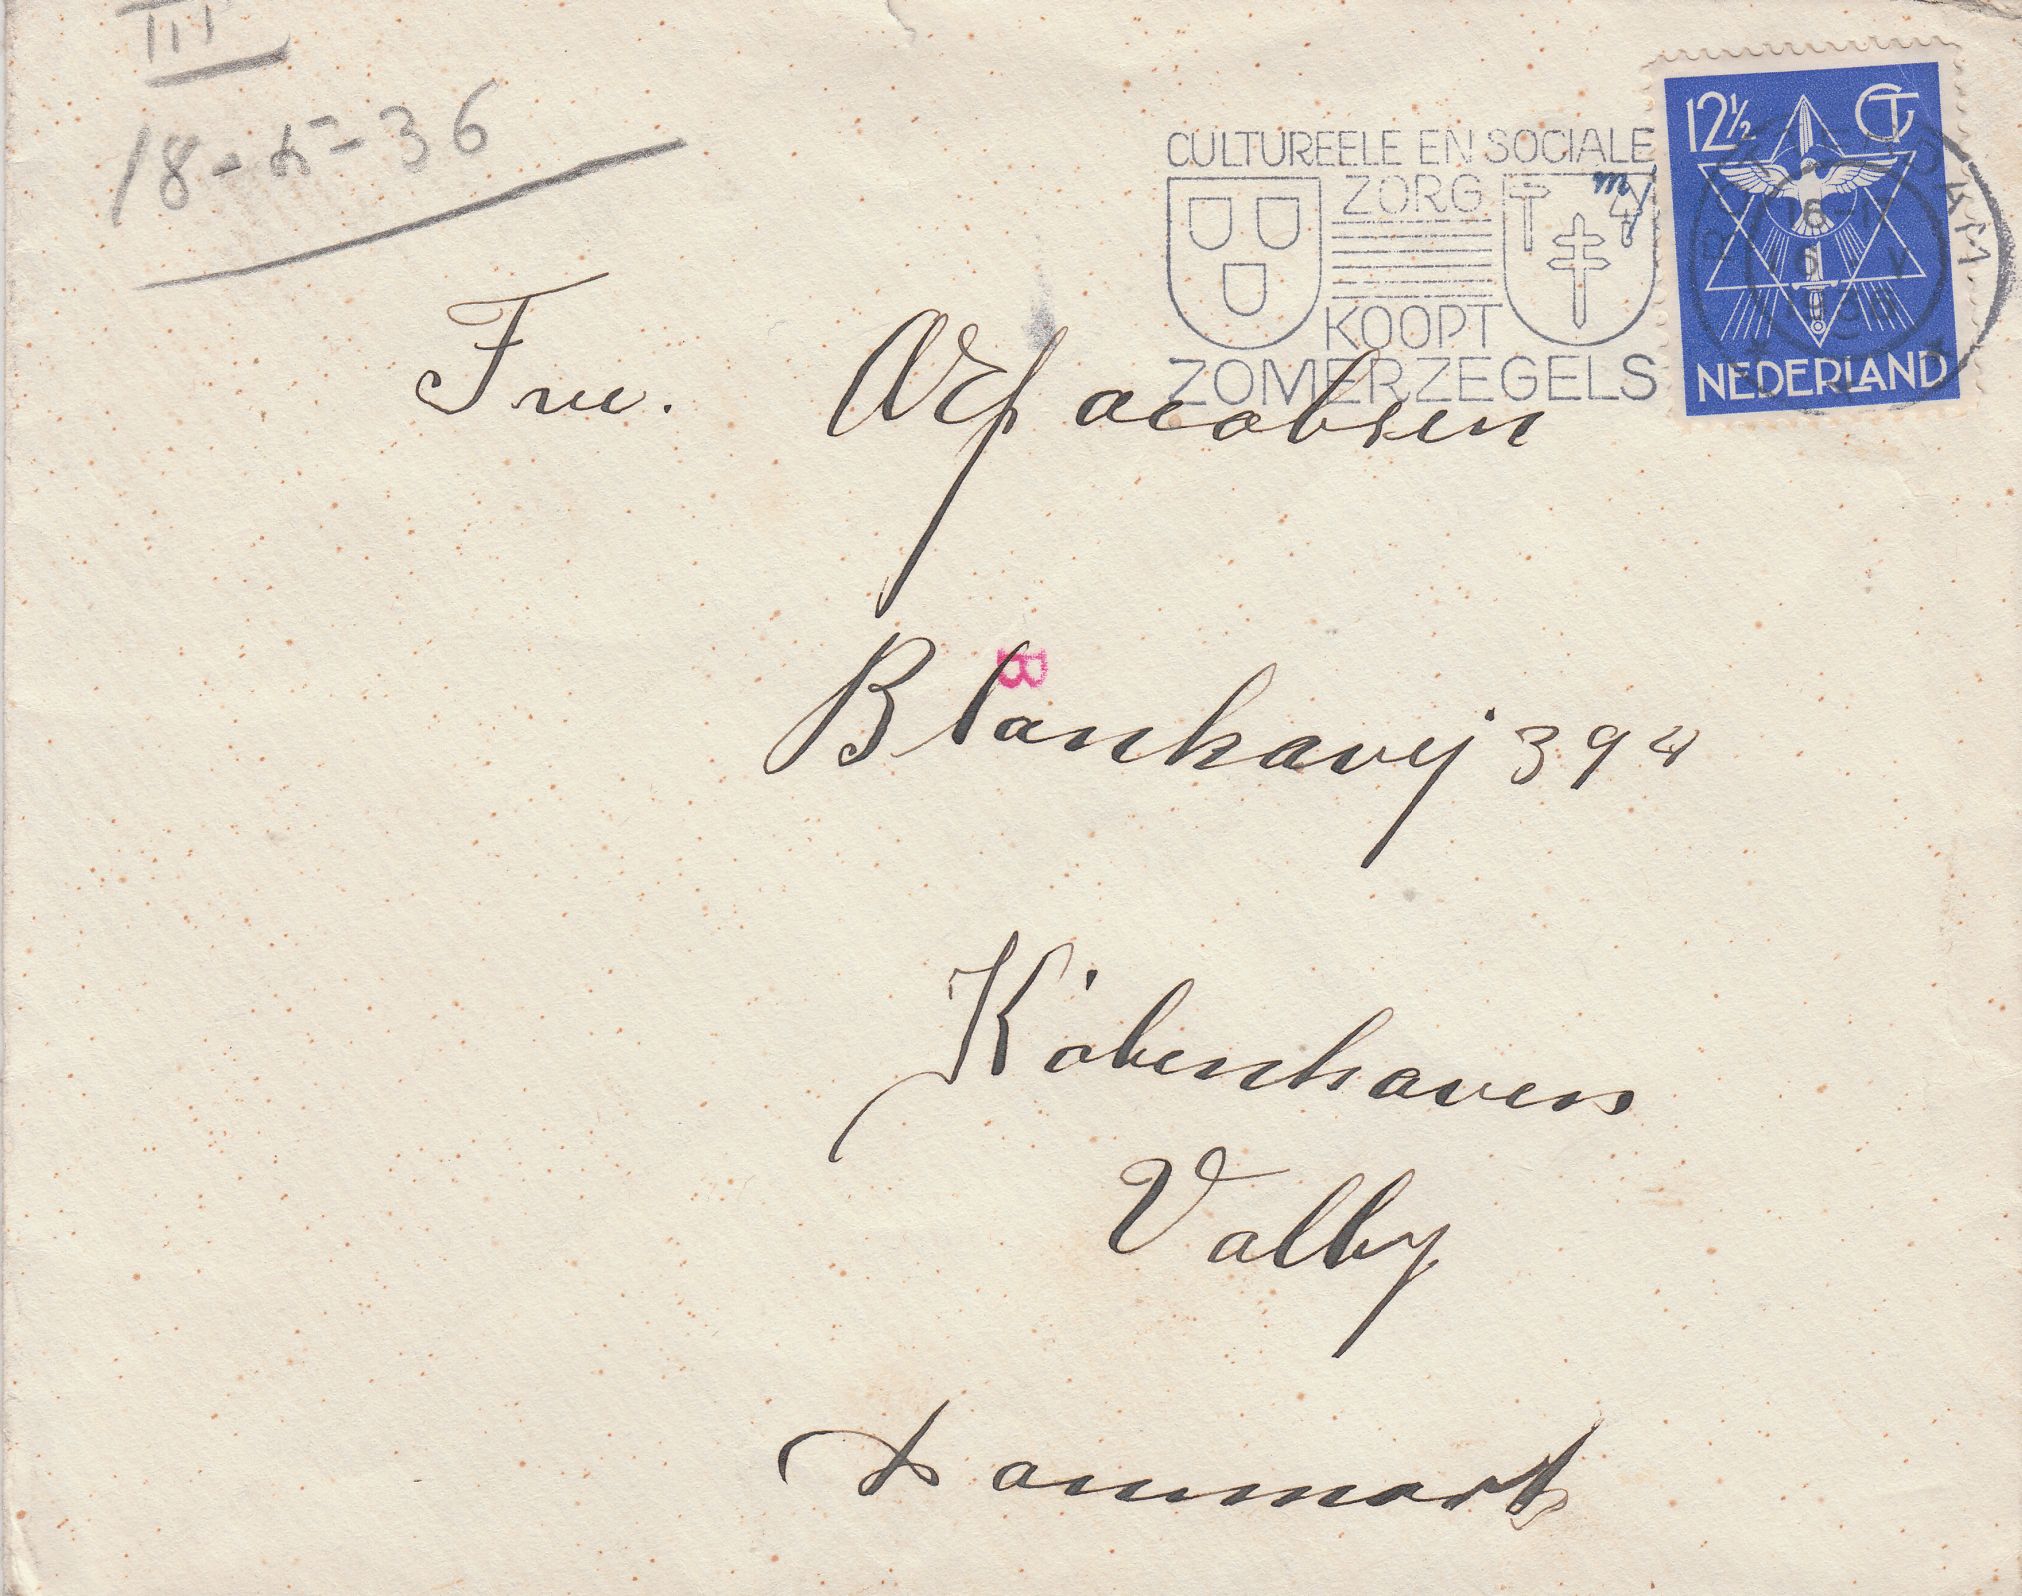 III
18-5-36
CULTUREELE EN SOCIALE
ZORG
KOOPT
ZOMERZEGELS
12½ CT
NEDERLAND
Fru. A E Jacobsen
B
Blankavej 39 4
Köbenhaven
Valby
Danmark